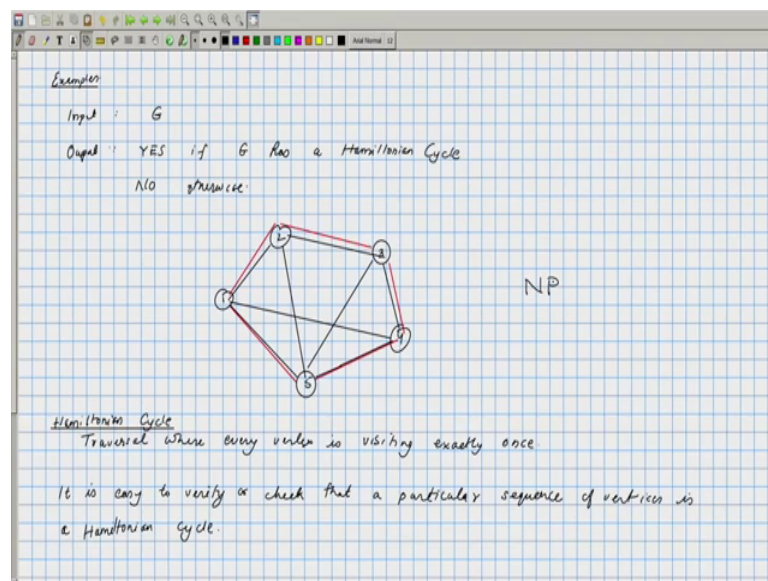 T
Arial Normal 12
Examples
Input : G
Ouput : YES if G has a Hamiltonian Cycle
NO otherwise.
2
3
1
NP
4
5
Hamiltonian Cycle
Traversal where every vertex is visiting exactly once.
It is easy to verify or check that a particular sequence of vertices is
a Hamiltonian Cycle.